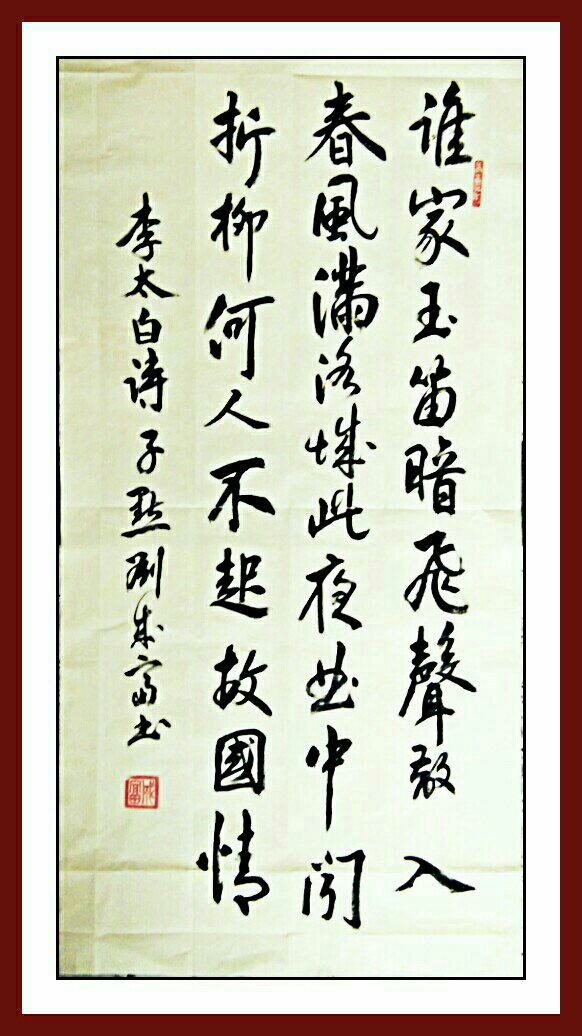 谁家玉笛暗飛聲散入
春風滿洛城此夜曲中闻
折柳何人不起故國情
李太白诗 子 劉成富书